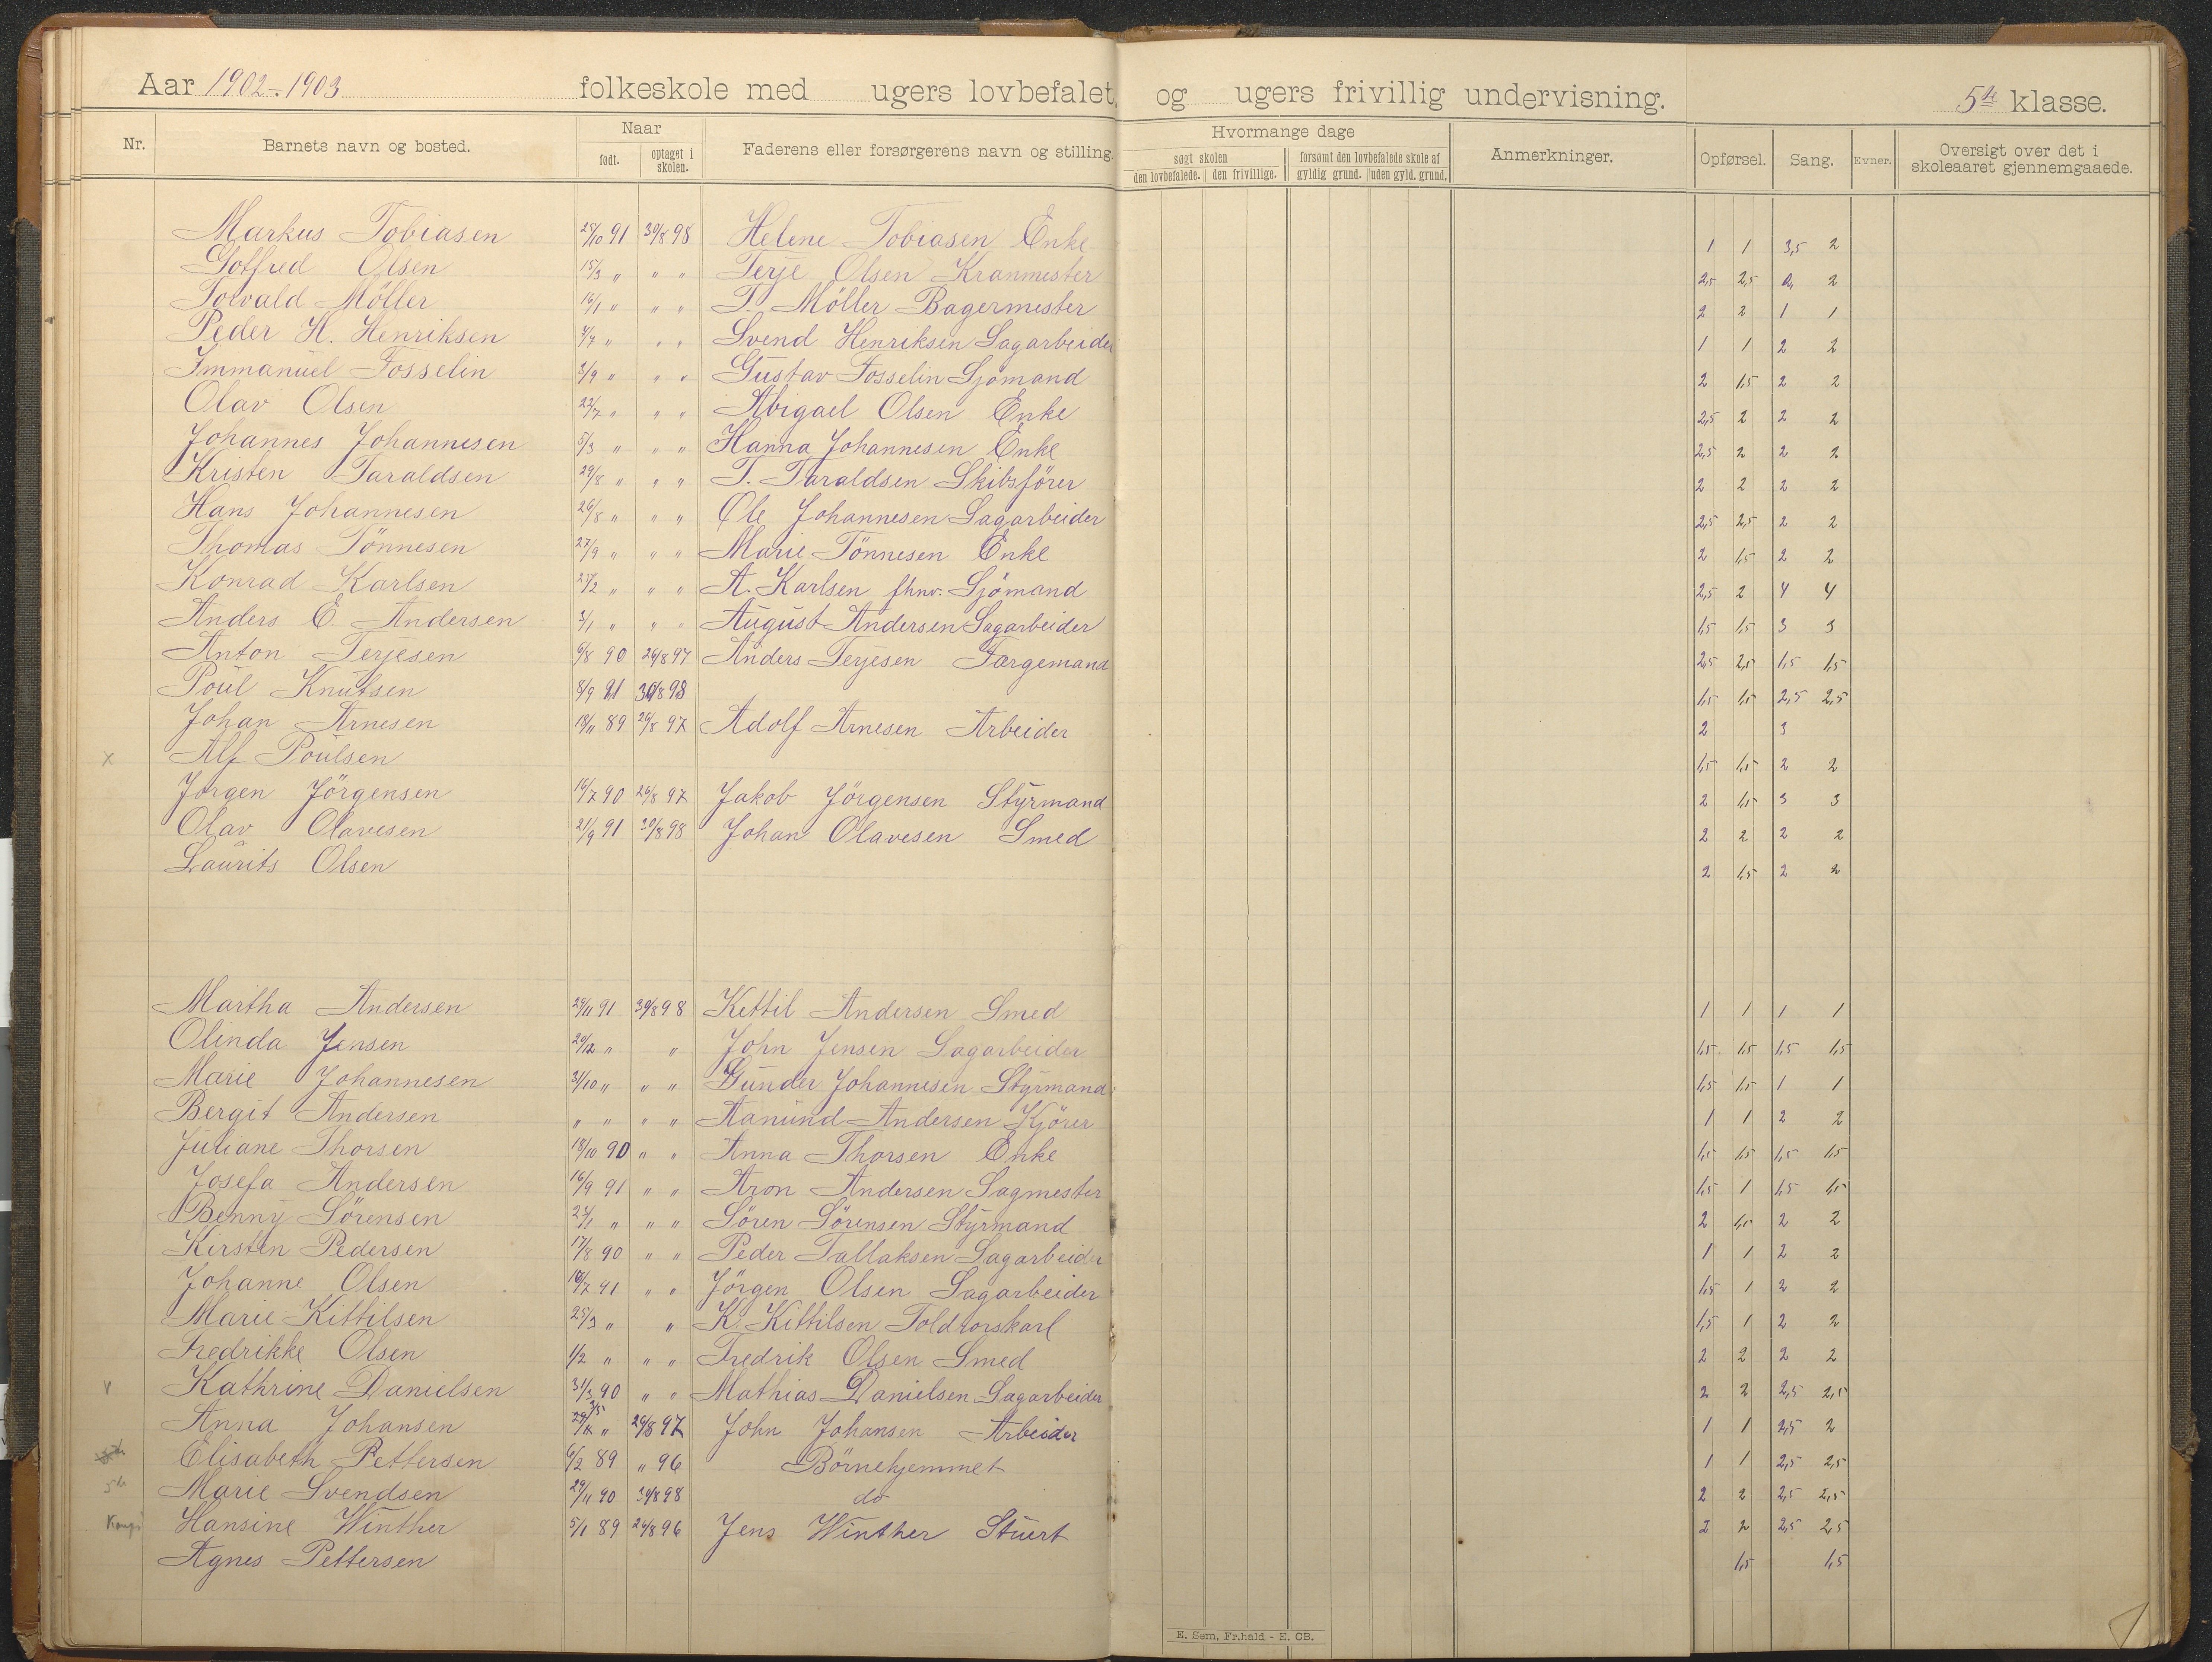 Aar 1902-1903 folkeskole med ugers lovbefalet, og ugers frivillig undervisning. 5te klasse.
Nr. Barnets navn og bosted. Naar født. optaget i skolen. Faderens eller forsørgerens navn og stilling. Hvormange dage søgt skolen den lovbefalede. den frivillige. forsømt den lovbefalede skole af gyldig grund. uden gyld. grund. Anmerkninger. Opførsel. Sang. Evner. Oversigt over det i skoleaaret gjennemgaaede.
Markus Tobiasen 28/10 91 30/8 98 Helene Tobiasen Enke 1 1 3,5 2
Gotfred Olsen 15/3 " " " Terje Olsen Kranmester 2,5 2,5 2 2
Torvald Möller 16/1 " " " T. Möller Bagermester 2 2 1 1
Peder H. Henriksen 4/7 " " " Svend Henriksen Sagarbeider 1 1 2 2
Immanuel Fosselin 3/9 " " " Gustav Fosselin Sjömand 2 1,5 2 2
Olav Olsen 22/7 " " " Abigael Olsen Enke 2,5 2 2 2
Johannes Johannesen 5/3 " " " Hanna Johannesen Enke 2,5 2 2 2
Kristen Taraldsen 29/8 " " " T. Taraldsen Skibsförer 2 2 2 2
Hans Johannesen 26/8 " " " Ole Johannesen Sagarbeider 2,5 2,5 2 2
Thomas Tönnesen 27/9 " " " Marie Tönnesen Enke 2 1,5 2 2
Konrad Karlsen 27/2 " " " A. Karlsen fhnv. Sjömand 2,5 2 4 4
Anders E. Andersen 3/1 " " " August Andersen Sagarbeider 1,5 1,5 3 3
Anton Terjesen 6/8 90 26/8 97 Anders Terjesen Færgemand 2,5 2,5 1,5 1,5
Poul Knutsen 8/9 91 30/8 98 1,5 1,5 2,5 2,5
Johan Arnesen 18/11 89 26/8 97 Adolf Arnesen Arbeider 2 3
x Alf Poulsen 1,5 1,5 2 2
Jørgen Jörgensen 16/7 90 26/8 97 Jakob Jörgensen Styrmand 2 1,5 3 3
Olav Olavesen 21/9 91 30/8 98 Johan Olavesen Smed 2 2 2 2
Laurits Olsen 2 1,5 2 2
Martha Andersen 29/11 91 30/8 98 Kettil Andersen Smed 1 1 1 1
Olinda Jensen 20/12 " " John Jensen Sagarbeider 1,5 1,5 1,5 1,5
Marie Johannesen 31/10 " " " Gunder Johannesen Styrmand 1,5 1,5 1 1
Bergit Andersen " " " " Aanund Andersen Kjörer 1 1 2 2
Juliane Thorsen 18/10 90 " " Anna Thorsen Enke 1,5 1,5 1,5 1,5
Josefa Andersen 16/9 91 " " Aron Andersen Sagmester 1,5 1 1,5 1,5
Benny Sörensen 23/1 " " " Sören Sörensen Styrmand 2 1,5 2 2
Kirsten Pedersen 17/8 90 " " Peder Tallaksen Sagarbeider 1 1 2 2
Johanne Olsen 16/7 91 " " Jörgen Olsen Sagarbeider 1,5 1 2 2
Marie Kittilsen 25/3 " " K. Kittilsen Toldrorskarl 1,5 1 2 2
Fredrikke Olsen 1/2 " " " Fredrik Olsen Smed 2 2 2 2
v Kathrine Danielsen 31/3 90 " " Mathias Danielsen Sagarbeider 2 2 2,5 2,5
Anna Johansen " 26/8 97 John Johansen Arbeider 1 1 2,5 2
Elisabeth Pettersen 6/2 89 " 96 Börnehjemmet 1 1 2,5 2,5
5te Marie Svendsen 29/11 90 30/8 98 do 2 2 2,5 2,5
Hansine Winther 5/1 89 24/8 96 Jens Winther Stuert 2 2 2,5 2,5
Agnes Pettersen 1,5 1,5
E. Sem, Fr.hald - E. CB.